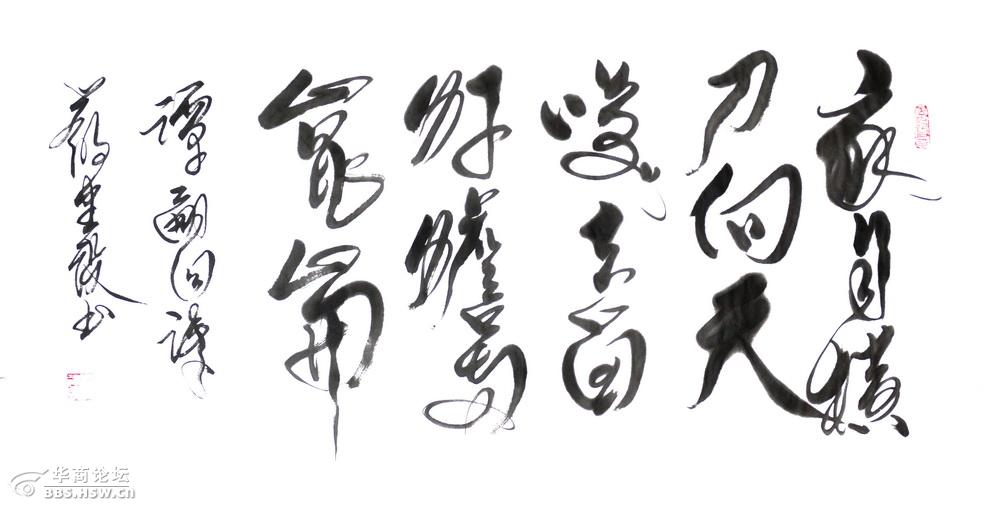 我自横
刀向天
笑去留
肝胆两
崑崙
谭嗣同诗
书
华商论坛
BBS.HSW.CN